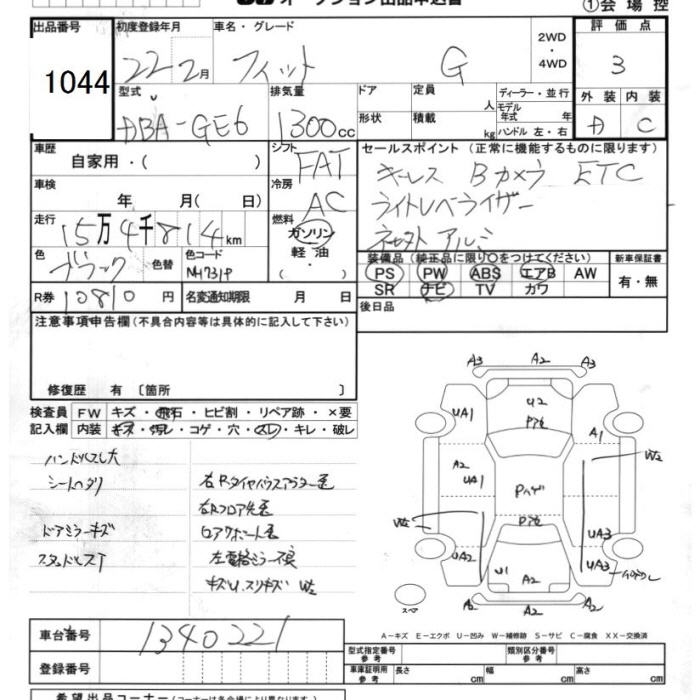 オークション出品申込書
①会場控
出品番号 1044
初度登録年月 22年2月
車名・グレード フィット G
2WD・4WD
評価点 3
外装 内装
C
型式 DBA-GE6
排気量 1300cc
ドア 形状
定員 人
積載 kg
ディーラー・並行
モデル年式 年
ハンドル 左・右
車歴 自家用・( )
シフト FAT
車検 年 月( 日)
冷房 AC
走行 15万4千814km
燃料 ガソリン・軽油・( )
色 ブラック 色替
色コード NH731P
R券 10810円
名変通知期限 月 日
セールスポイント (正常に機能するものに限ります)
キーレス Bカメラ ETC
ライトレベライザー
アルミ
装備品 (純正品に限り○をつけてください)
PS PW ABS エアB AW
SR ナビ TV カワ
新車保証書 有・無
後日品
注意事項申告欄 (不具合内容等は具体的に記入して下さい)
修復歴 有 〔箇所 〕
検査員記入欄
FW キズ・飛石・ヒビ割・リペア跡・×要
内装 キズ・汚レ・コゲ・穴・スレ・キレ・破レ
ハンドルスレ大
シートヘタリ
ドアミラーキズ
右Rタイヤハウスアウター歪
右Rフロア先歪
ロアサポート歪
左電格ミラー不良
キズU、スリキズ W2
A3 A2 A3
UA1 U2 A1 W2
P76
A2 UA1 Pハゲ
P76
W2 UA2 U1 A2 UA3 UA3
A2 A2 A2
スペア
A－キズ E－エクボ U－凹み W－補修跡 S－サビ C－腐食 XX－交換済
車台番号 1340221
登録番号
型式指定番号 参考
類別区分番号 参考
車庫証明用 参考 長さ cm 幅 cm 高さ cm
希望出品コーナー